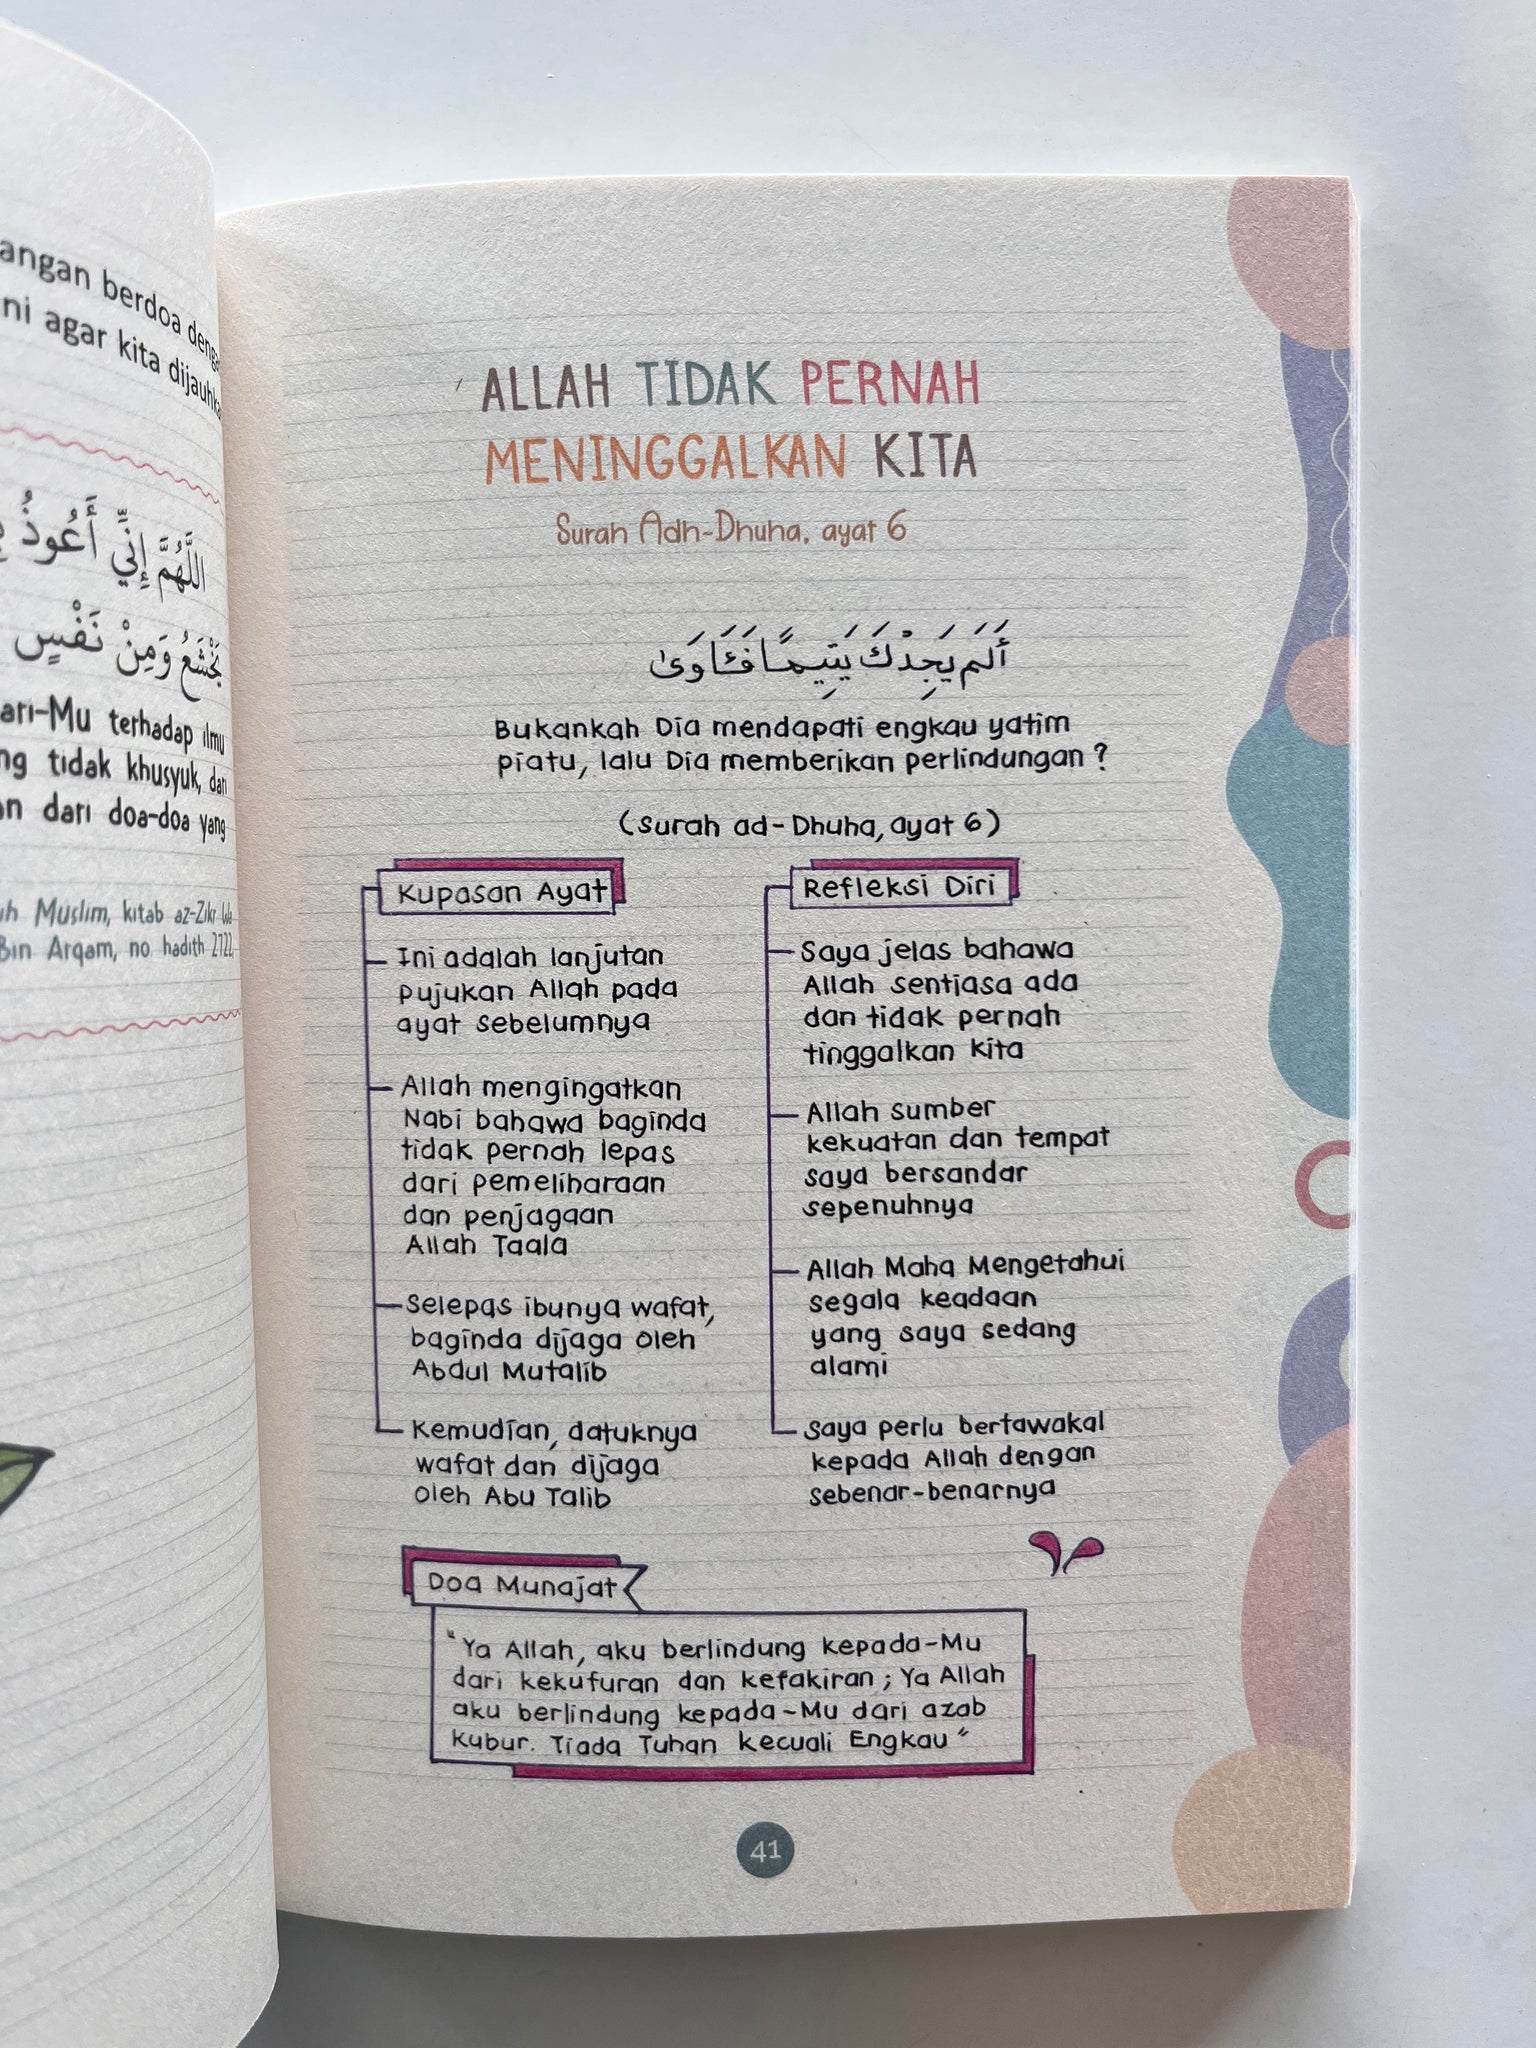 angan berdoa
ni agar kita
اللَّهُمَّ إِنِّي أَعُوذُ
وَمِنْ نَفْسٍ
terhadap ilmu
tidak khusyuk, dari
dari doa-doa yang
Muslim, kitab az-Zikr
Bin Arqam, no hadith 2722,
ALLAH TIDAK PERNAH
MENINGGALKAN KITA
Surah Adh-Dhuha, ayat 6
أَلَمْ يَجِدْكَ يَتِيمًا فَـَٔاوَىٰ
Bukankah Dia mendapati engkau yatim
piatu, lalu Dia memberikan perlindungan?
(Surah ad-Dhuha, ayat 6)
Kupasan Ayat
Ini adalah lanjutan
pujukan Allah pada
ayat sebelumnya
Allah mengingatkan
Nabi bahawa baginda
tidak pernah lepas
dari pemeliharaan
dan penjagaan
Allah Taala
Selepas ibunya wafat,
baginda dijaga oleh
Abdul Mutalib
Kemudian, datuknya
wafat dan dijaga
oleh Abu Talib
Refleksi Diri
Saya jelas bahawa
Allah sentiasa ada
dan tidak pernah
tinggalkan kita
Allah sumber
kekuatan dan tempat
saya bersandar
sepenuhnya
Allah Maha Mengetahui
segala keadaan
yang saya sedang
alami
Saya perlu bertawakal
kepada Allah dengan
sebenar-benarnya
Doa Munajat
"Ya Allah, aku berlindung kepada-Mu
dari kekufuran dan kefakiran; Ya Allah
aku berlindung kepada-Mu dari azab
kubur. Tiada Tuhan kecuali Engkau"
41